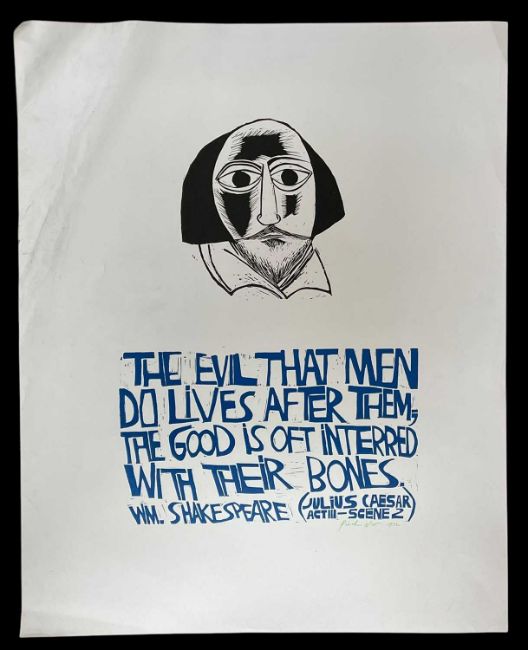 THE EVIL THAT MEN
DO LiVES AFTER THEM;
THE GOOD iS OFT INTERRED
WITH THEiR BONES.
WM. SHAKESPEARE (JULiUS CAESAR
ACT III—SCENE 2)